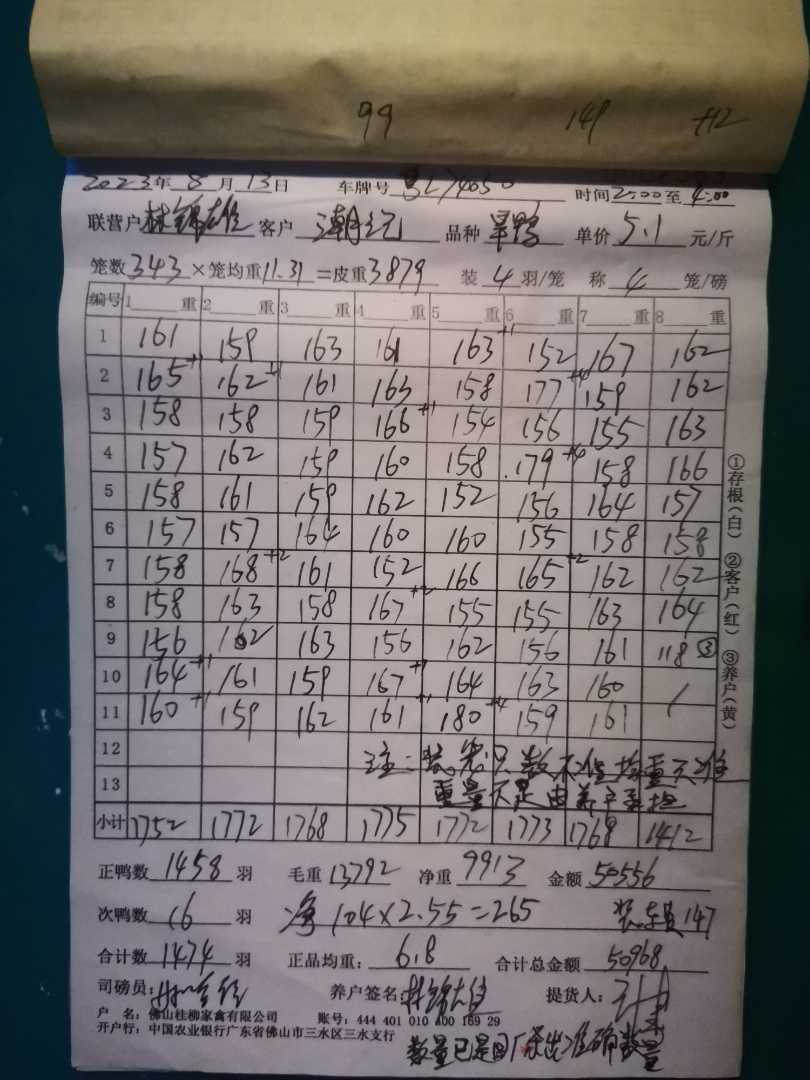 99 149 +12
2023年8月13日 车牌号 时间2:00至4:00
联营户林锦雄 客户 潮记 品种 旱鸭 单价 5.1 元/斤
笼数343×笼均重11.31=皮重3879 装4羽/笼 称4笼/磅
编号 1重 2重 3重 4重 5重 6重 7重 8重
1 161 159 163 161 163+1 152 167 162
2 165+1 162+1 161 163 158 177+4 159 162
3 158 158 159 166+1 154 156 155 163
4 157 162 159 160 158 179+4 158 166
5 158 161 159 162 152 156 164 157
6 157 157 164 160 160 155 158 158
7 158 168+2 161 152 166 165+2 162 162
8 158 163 158 167+2 155 155 163 164
9 156 162 163 156 162 156 161 118③
10 164+1 161 159 167+1 164 163 160 /
11 160+1 159 162 161+1 180+4 159 161
12 注:装车只数不准均重不准
13 重量不足由养户承担
小计 1752 1772 1768 1775 1772 1773 1768 1412
正鸭数1458羽 毛重13792 净重9913 金额50556
次鸭数16羽 净104×2.55=265 装车费147
合计数1474羽 正品均重:6.8 合计总金额50968
司磅员: 养户签名:林锦雄 提货人:
户 名:佛山桂柳家禽有限公司 账号:444 401 010 400 169 29
开户行:中国农业银行广东省佛山市三水区三水支行
数量已是回厂杀出准确数量
①存根(白) ②客户(红) ③养户(黄)